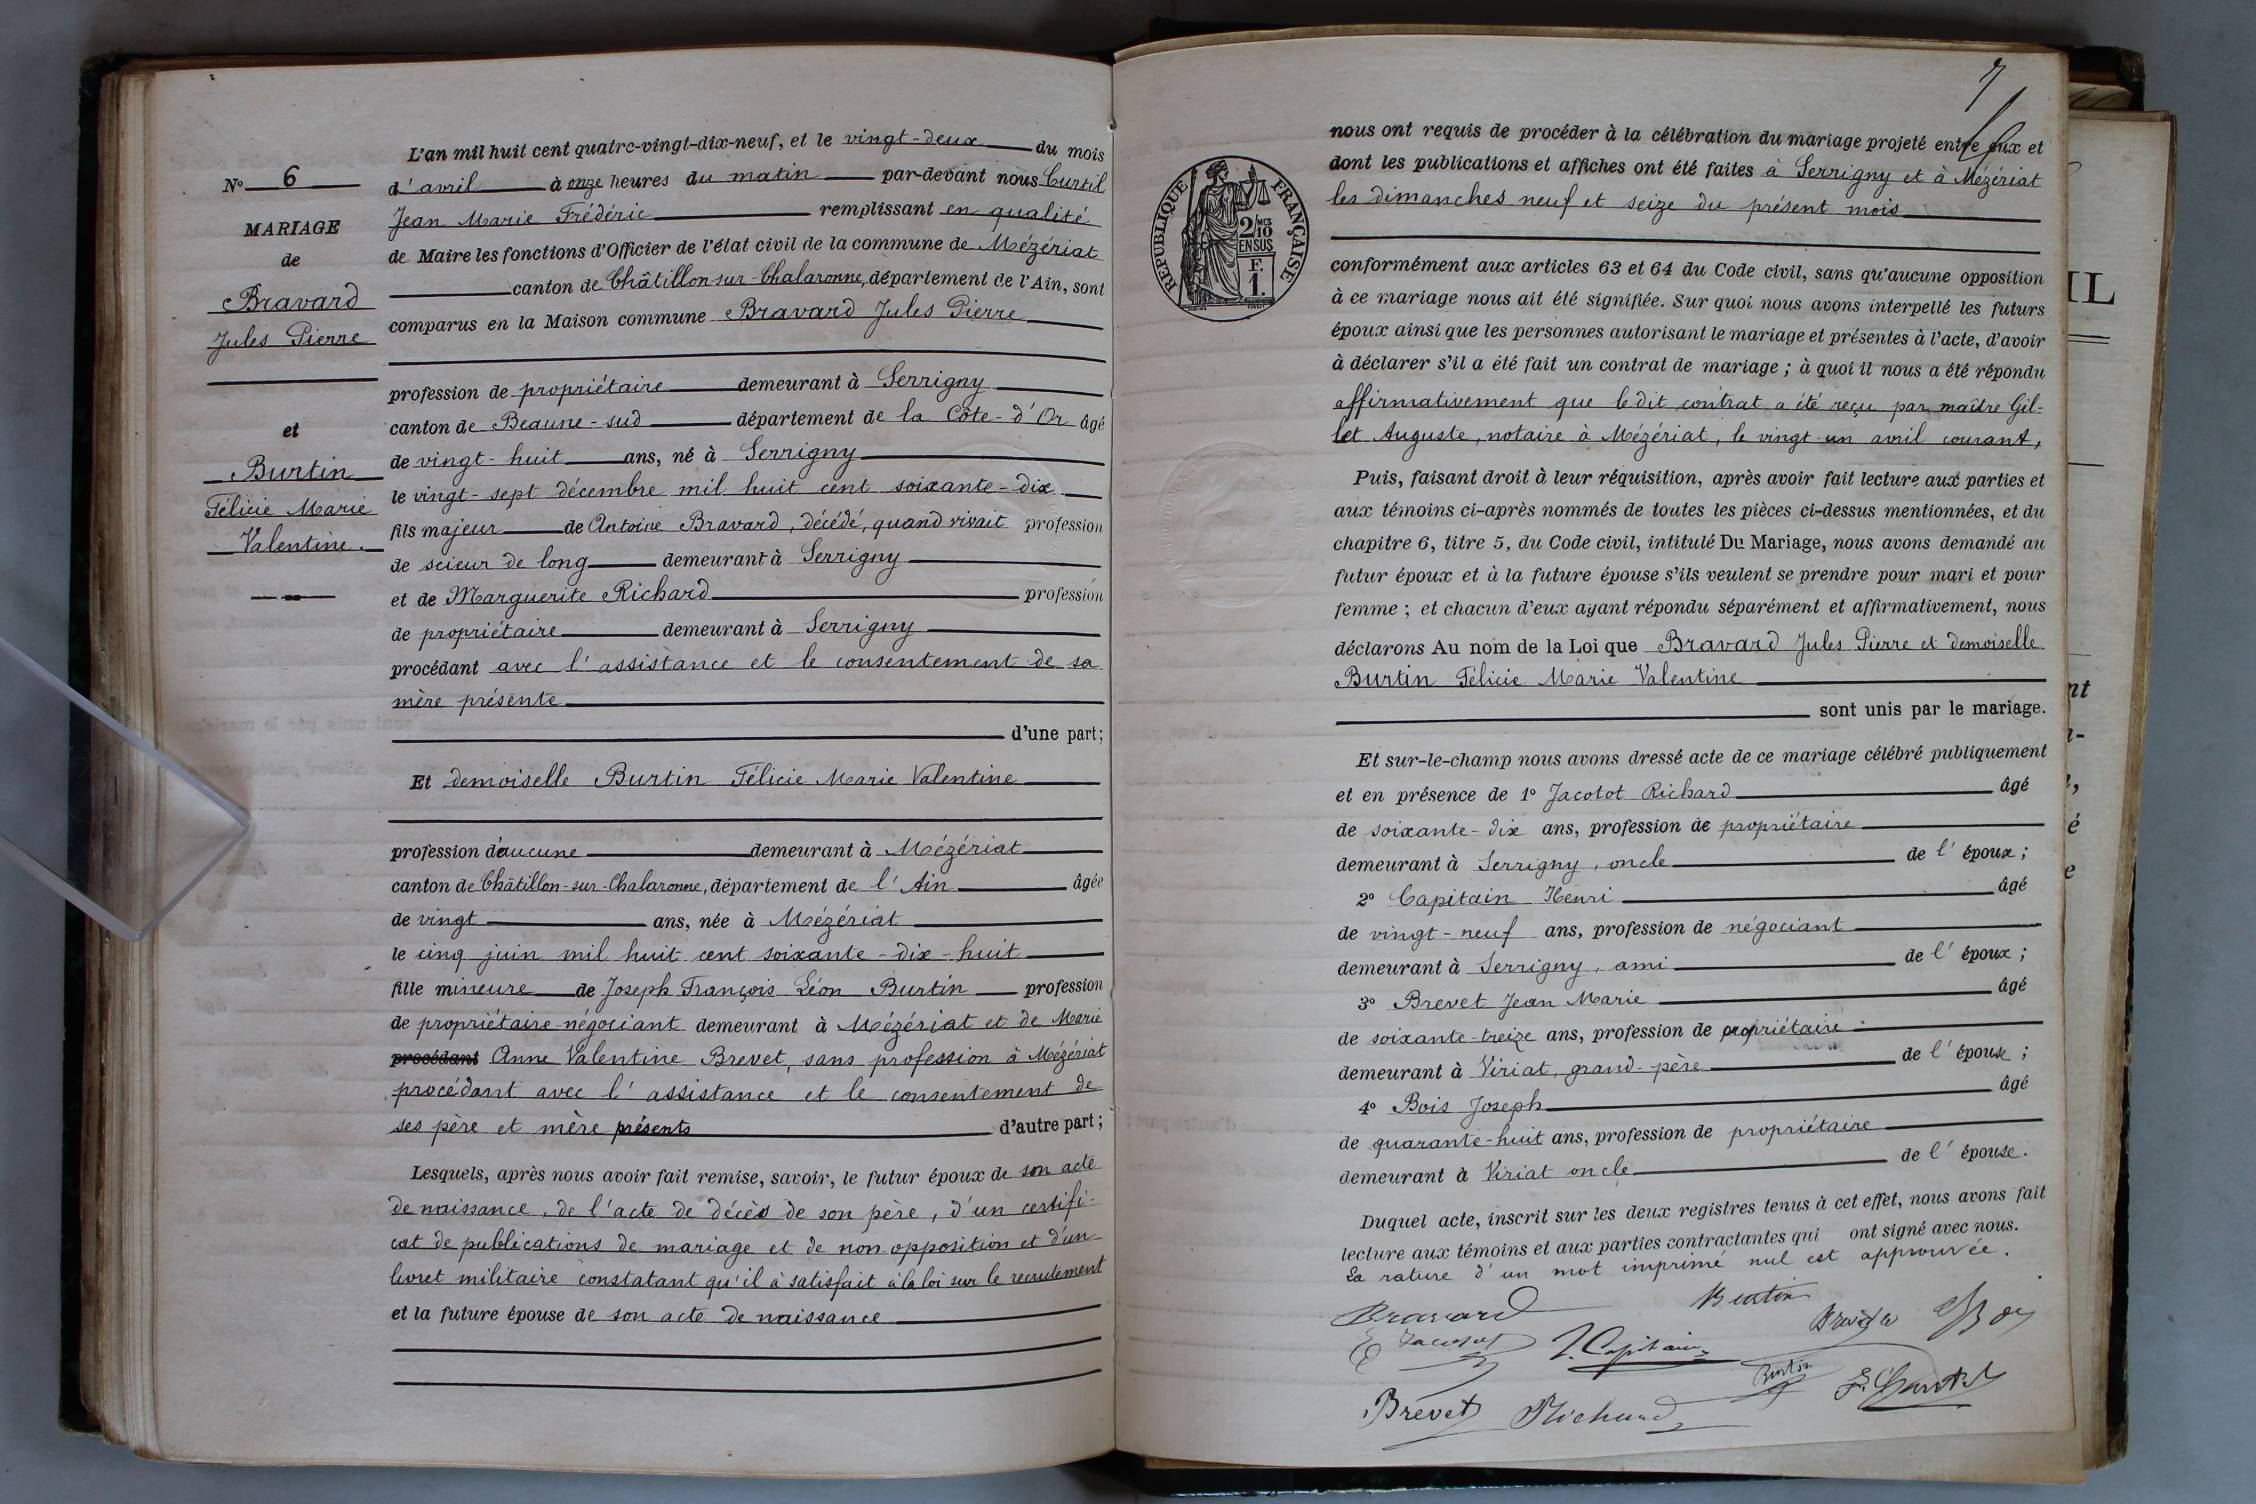 L'an mil huit cent quatre-vingt-dix-neuf, et le vingt-deux du mois
N° 6
d'avril à onze heures du matin par-devant nous Curtil
Jean Marie Frédéric remplissant en qualité
MARIAGE
de
de Maire les fonctions d'Officier de l'état civil de la commune de Mézériat
canton de Châtillon-sur-Chalaronne, département de l'Ain, sont
Bravard
Jules Pierre
comparus en la Maison commune Bravard Jules Pierre
profession de propriétaire demeurant à Serrigny
canton de Beaune-sud département de la Côte-d'Or âgé
et
de vingt-huit ans, né à Serrigny
Burtin
Félicie Marie
Valentine.
le vingt-sept décembre mil huit cent soixante-dix
fils majeur de Antoine Bravard, décédé, quand vivait profession
de scieur de long demeurant à Serrigny
et de Marguerite Richard profession
de propriétaire demeurant à Serrigny
procédant avec l'assistance et le consentement de sa
mère présente
d'une part;
Et demoiselle Burtin Félicie Marie Valentine
profession d'aucune demeurant à Mézériat
canton de Châtillon-sur-Chalaronne, département de l'Ain âgée
de vingt ans, née à Mézériat
le cinq juin mil huit cent soixante-dix-huit
fille mineure de Joseph François Léon Burtin profession
de propriétaire-négociant demeurant à Mézériat et de Marie
procédant Anne Valentine Brevet, sans profession à Mézériat
procédant avec l'assistance et le consentement de
ses père et mère présents d'autre part;
Lesquels, après nous avoir fait remise, savoir, le futur époux de son acte
de naissance, de l'acte de décès de son père, d'un certifi-
cat de publications de mariage et de non opposition et d'un
livret militaire constatant qu'il a satisfait à la loi sur le recrutement
et la future épouse de son acte de naissance
7
nous ont requis de procéder à la célébration du mariage projeté entre eux et
dont les publications et affiches ont été faites à Serrigny et à Mézériat
les dimanches neuf et seize du présent mois
REPUBLIQUE FRANÇAISE
2/10
MES
EN SUS
F.
1.
conformément aux articles 63 et 64 du Code civil, sans qu'aucune opposition
à ce mariage nous ait été signifiée. Sur quoi nous avons interpellé les futurs
époux ainsi que les personnes autorisant le mariage et présentes à l'acte, d'avoir
à déclarer s'il a été fait un contrat de mariage ; à quoi il nous a été répondu
affirmativement que ledit contrat a été reçu par maître Gil-
let Auguste, notaire à Mézériat, le vingt-un avril courant,
Puis, faisant droit à leur réquisition, après avoir fait lecture aux parties et
aux témoins ci-après nommés de toutes les pièces ci-dessus mentionnées, et du
chapitre 6, titre 5, du Code civil, intitulé Du Mariage, nous avons demandé au
futur époux et à la future épouse s'ils veulent se prendre pour mari et pour
femme ; et chacun d'eux ayant répondu séparément et affirmativement, nous
déclarons Au nom de la Loi que Bravard Jules Pierre et demoiselle
Burtin Félicie Marie Valentine
sont unis par le mariage.
Et sur-le-champ nous avons dressé acte de ce mariage célébré publiquement
et en présence de 1° Jacotot Richard âgé
de soixante-dix ans, profession de propriétaire
demeurant à Serrigny, oncle de l'époux ;
2° Capitain Henri âgé
de vingt-neuf ans, profession de négociant
demeurant à Serrigny, ami de l'époux ;
3° Brevet Jean Marie âgé
de soixante-treize ans, profession de propriétaire
demeurant à Viriat, grand-père de l'épouse ;
4° Bois Joseph âgé
de quarante-huit ans, profession de propriétaire
demeurant à Viriat oncle de l'épouse.
Duquel acte, inscrit sur les deux registres tenus à cet effet, nous avons fait
lecture aux témoins et aux parties contractantes qui ont signé avec nous.
La rature d'un mot imprimé nul est approuvée.
Bravard Burtin
Jacotot Capitain
Burtin
Brevet Richard
IL